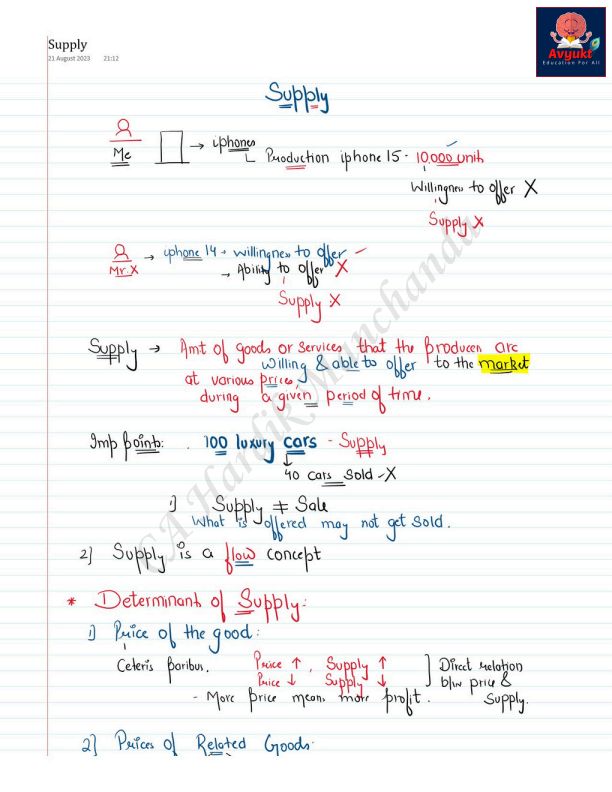 Supply
21 August 2023 21:12
Avyukt
Education For All
Supply
Me → iphones
Production iphone 15 - 10,000 unit
Willingness to offer X
Supply X
Mr. X → iphone 14 → willingness to offer
→ Ability to offer X
Supply X
Supply → Amt of goods or services that the producers are
willing & able to offer to the market
at various prices,
during a given period of time.
Imp points: . 100 luxury cars - Supply
40 cars sold - X
1) Supply ≠ Sale
What is offered may not get sold.
2] Supply is a flow concept
* Determinant of Supply:
1) Price of the good:
Ceteris paribus, Price ↑, Supply ↑ ] Direct relation
Price ↓ Supply ↓ b/w price &
- More price means more profit. Supply.
2] Prices of Related Goods:
CA Hardik Munchanda